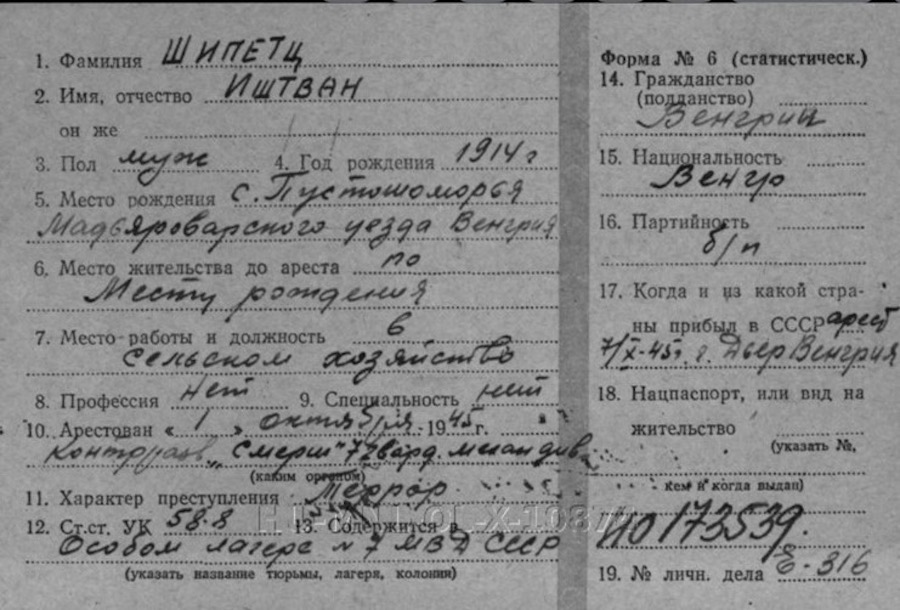 1. Фамилия ШИПЕТЦ
2. Имя, отчество ИШТВАН
он же
3. Пол муж 4. Год рождения 1914 г
5. Место рождения с. Пустошоморья
Мадьяроварского уезда Венгрия
6. Место жительства до ареста по
Месту рождения
7. Место работы и должность в
сельском хозяйство
8. Профессия нет 9. Специальность нет
10. Арестован « 1 » октября 1945 г.
"Смерш" гвард. див
(каким органом)
11. Характер преступления Террор
12. Ст.ст. УК 58-8 13. Содержится в
Особом лагере № 7 МВД СССР
(указать название тюрьмы, лагеря, колонии)
Форма № 6 (статистическ.)
14. Гражданство
(подданство)
Венгрии
15. Национальность
Венгр
16. Партийность
б/п
17. Когда и из какой стра-
ны прибыл в СССР арест
7/X-45г. г. Дьер Венгрия
18. Нацпаспорт, или вид на
жительство
(указать №,
кем и когда выдан)
173539
19. № личн. дела Е-316